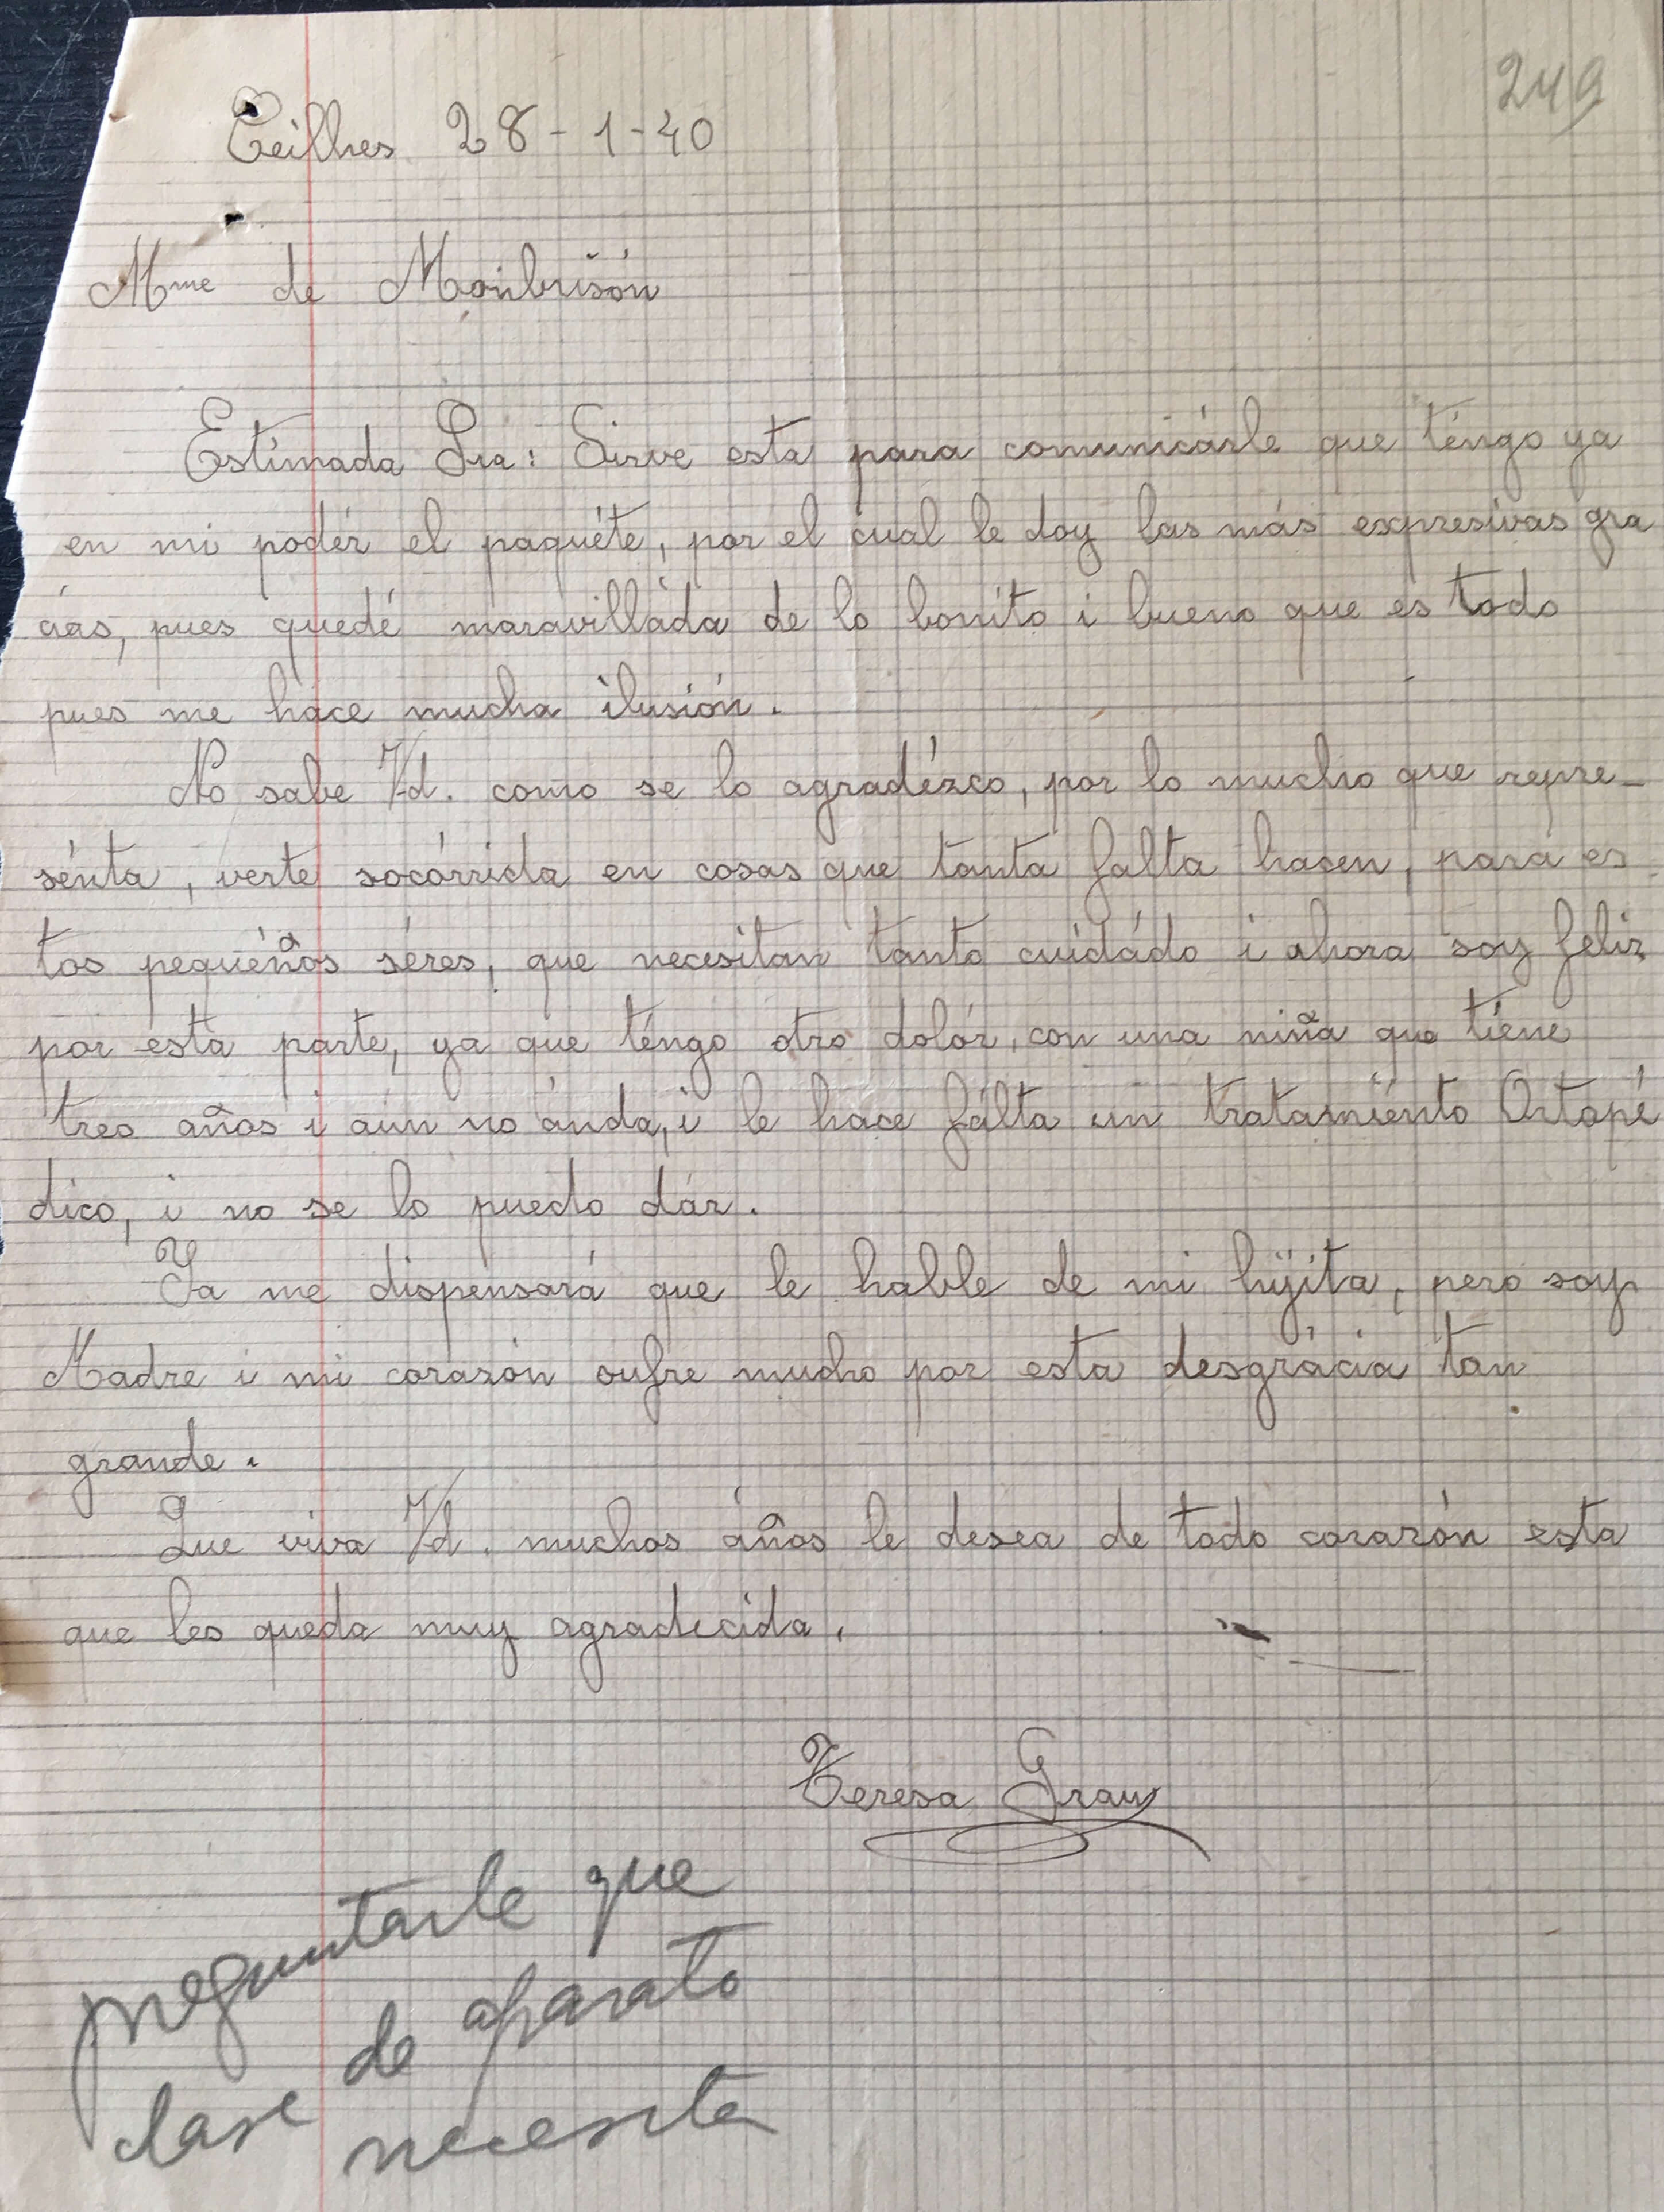 249
Ceilhes 28-1-40
Mme de Monbrisón
Estimada Sra: Sirve esta para comunicárle que téngo ya
en mi podér el paquéte, por el cual le doy las más expresivas gra
ciás, pues quedé maravilláda de lo bonito i bueno que es todo
pues me hace mucha ilusión.
No sabe Vd. como se lo agradézco, por lo mucho que repre-
sénta, verte socórrida en cosas que tanta falta hacen, para es
tos pequéños séres, que necesitan tanto cuidádo i ahora soy feliz
por esta parte, ya que téngo otro dolór, con una niña que tiéne
tres años i aun no ánda, i le hace fálta un tratamiénto Ortopé
dico, i no se lo puedo dár.
Ya me dispensará que le hable de mi hijita, pero soy
Madre i mi corazón sufre mucho por esta desgrácia tan
grande.
Que viva Vd. muchos áños le desea de todo corazón esta
que les queda muy agradecida.
Teresa Grau
preguntarle que
clase de aparato
necesita